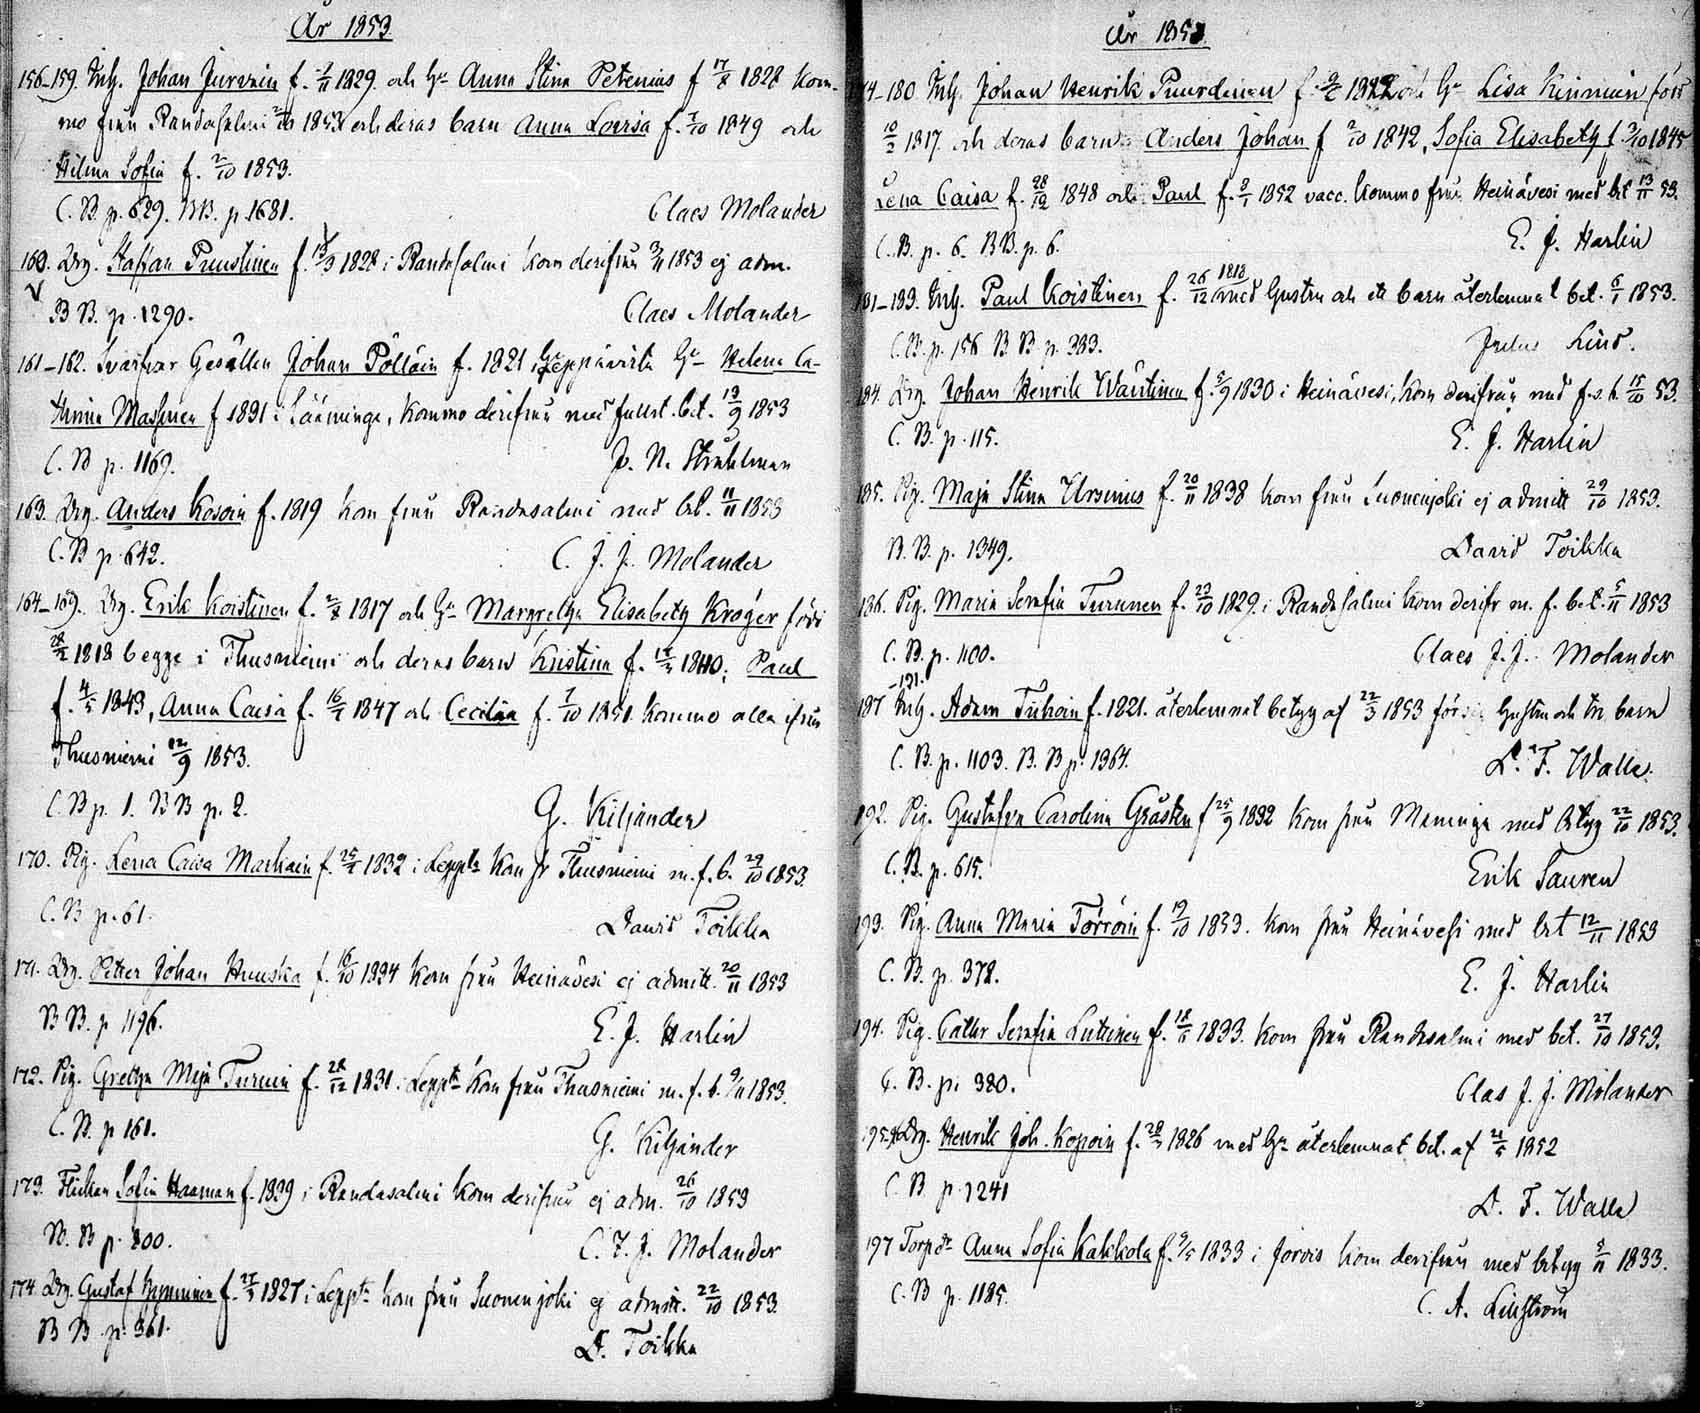 År 1853.
156–159. Inh. Johan Jurvain f. 1829. och Hu Anna Stina Petenius f 17/8 1828 kom-
mo från Randasalmi 1853 och deras barn Anna Lovisa f. 7/10 1849 och
Hilma Sofia f. 2/10 1853.
C. B. p. 629. BB. p. 1681.
Claes Molander
160. Drg. Staffan Puustinen f. 1828 i Randasalmi kom derifrån 3/11 1853 ej adm.
B B. p. 1290.
Claes Molander
161–162. Svarfvar Gesällen Johan Pöllain f. 1821 i Leppävirta Hu Helena Ca-
thrina f 1831 i Sääminge, kommo derifrån med fullst. bet. 13/9 1853
C. B p. 1169.
J. N. Stråhlman
163. Drg. Anders Kosoin f. 1819 kom från Randasalmi med bet. 11/11 1853
C. B p. 642.
C. J. J. Molander
164–169. Drg. Erik Koistinen f. 2/8 1817 och Hu Margretha Elisabeth Kröger född
1818 begge i Thusniemi och deras barn Kristina f. 1840; Paul
f. 4/5 1843, Anna Caisa f. 16/4 1847 och Cecilia f. 7/10 1851 kommo alla ifrån
Thusniemi 12/9 1853.
C. B p. 1. BB p. 2.
G. Kiljander
170. Pig. Lena Caisa Markain f. 1832 i Leppta kom fr Thusniemi m. f. b. 29/10 1853.
C. B p. 61.
David Toikka
171. Drg. Petter Johan Huuska f. 1834 kom från Heinävesi ej admitt. 20/11 1853
B B. p 1196.
E. J. Harlin
172. Pig. Gretha Maja Turuin f. 28/12 1831 i Leppta kom från Thusniemi m. f. b. 9/11 1853.
C. B. p 161.
G. Kiljander
173. Flickan Sofia Haaman f. 1839 i Randasalmi kom derifrån ej adm. 26/10 1853
B. B p. 200.
C. J. J. Molander
174. Drg. Gustaf Hynninen f. 1827 i Leppta kom från Suonenjoki ej admitt. 22/10 1853
B B p. 361.
D. Toikka
År 1853.
174–180 Inh. Johan Henrik Puurdinen f. 1822 och Hu Lisa Kinnuin född
10/2 1817 och deras barn: Anders Johan f 2/10 1842, Sofia Elisabeth f. 3/10 1845
Lena Caisa f. 28/12 1848 och Paul f. 9/1 1852 vacc. kommo från Heinävesi med bet 13/11 53.
C. B. p. 6. BB. p. 6.
E. J. Harlin
181–183. Inh. Paul Koistinen f. 26/12 1818 med Hustru och ett barn återlemnat bet. 6/1 1853.
C. B. p. 156 B. B. p. 333.
Julius Lind.
184. Drg. Johan Henrik Wäntinen f. 5/9 1830 i Heinävesi, kom derifrån med f. s. b. 15/10 53.
C. B. p. 115.
E. J. Harlin
185. Pig. Maja Stina Ursinius f. 20/11 1838 kom från Suonenjoki ej admitt 29/10 1853.
B. B. p. 1349.
David Toikka
186. Pig. Maria Serafia Turunen f. 23/10 1829. i Randasalmi kom derifr m. f. bet. 5/11 1853
C. B. p. 1100.
Claes J. J. Molander
187–191. Inh. Adam Tuhain f. 1821. återlemnat betyg af 22/3 1853 för sig Hustru och tre barn
C. B. p. 1103. B. B p. 1364.
D. F. Walle.
192. Pig. Gustafva Carolina Gråsten f 25/9 1832 kom från Meninge med betyg 22/10 1853.
C. B. p. 615.
Erik Tauren
193. Pig. Anna Maria Törröin f. 19/10 1833. kom från Heinävesi med bet 12/11 1853
C. B. p. 372.
E. J. Harlin
194. Pig. Cathr Serafia Luttinen f. 18/5 1833. kom från Randasalmi med bet. 27/10 1853.
C. B. p. 380.
Clas J. J. Molander
195.96 Drg. Henrik Joh. Kopoin f. 1826 med Hu återlemnat bet. af 21/5 1852
C. B p. 1241
D. F. Walle
197 Torpdr Anna Sofia Kakkola f. 9/5 1833 i Jorois kom derifrån med betyg 5/11 1833.
C. B p. 1185.
C. A. Lihström